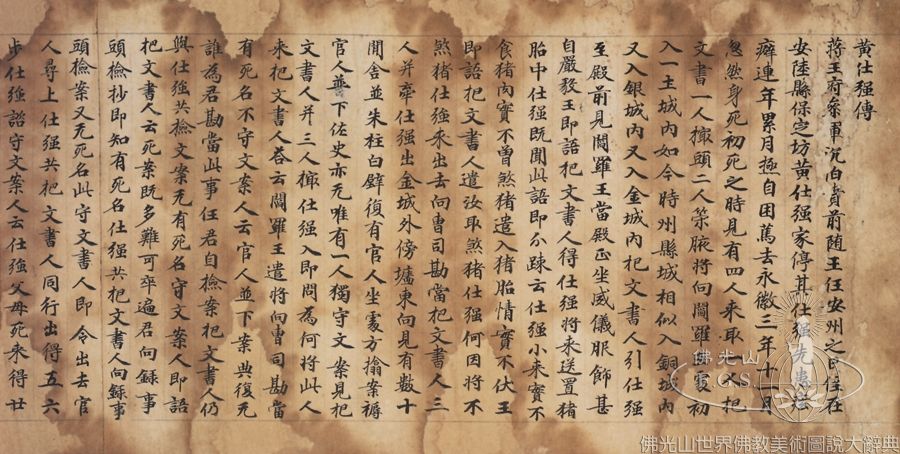 黃仕強傳
蔣王府參軍沉伯貴前随王任安州之民住在
安陸縣保定坊黃仕强家停其仕强先患
癖連年累月極自困蔫去永徽三年十一月
忽然身死初死之時見有四人来取一人把
文書一人撮頭二人策腋將向閻羅王初
入一土城內如今時州縣城相似入銅城內
又入銀城內又入金城內把文書人引仕强
至殿前見閻羅王當殿正坐威儀服飾甚
自嚴駿王即語把文書人得仕强將来送置猪
胎中仕强既聞此語即分踈云仕强小来實不
食猪肉實不曾煞猪遣入猪胎情實不伏王
即語把文書人遣汝取煞猪仕强何因將不
煞猪仕强来出去向曹司勘當把文書人三
人并牽仕强出金城外傍壚東向見有數十
間舍並朱柱白壁復有官人坐處方搚案褥
官人並下佐史亦无唯有一人獨守文案見把
文書人并三人撮仕强入即問為何將此人
来把文書人荅云閻羅王遣將向曹司勘當
有死名不守文案人云官人並下案典復无
誰為君勘當此事任君自撿案把文書人仍
與仕强共撿文案无有死名守文案人即語
把文書人云死案既多難可卒遍君向録事
頭撿抄即知有死名仕强共把文書人向録事
頭撿案又无死名此守文書人即令出去官
人尋上仕强共把文書人同行出得五六
步仕强諮守文案人云仕强父母死来得廿
佛光山
F.G.S.
電
佛光山世界佛教美術圖說大辭典